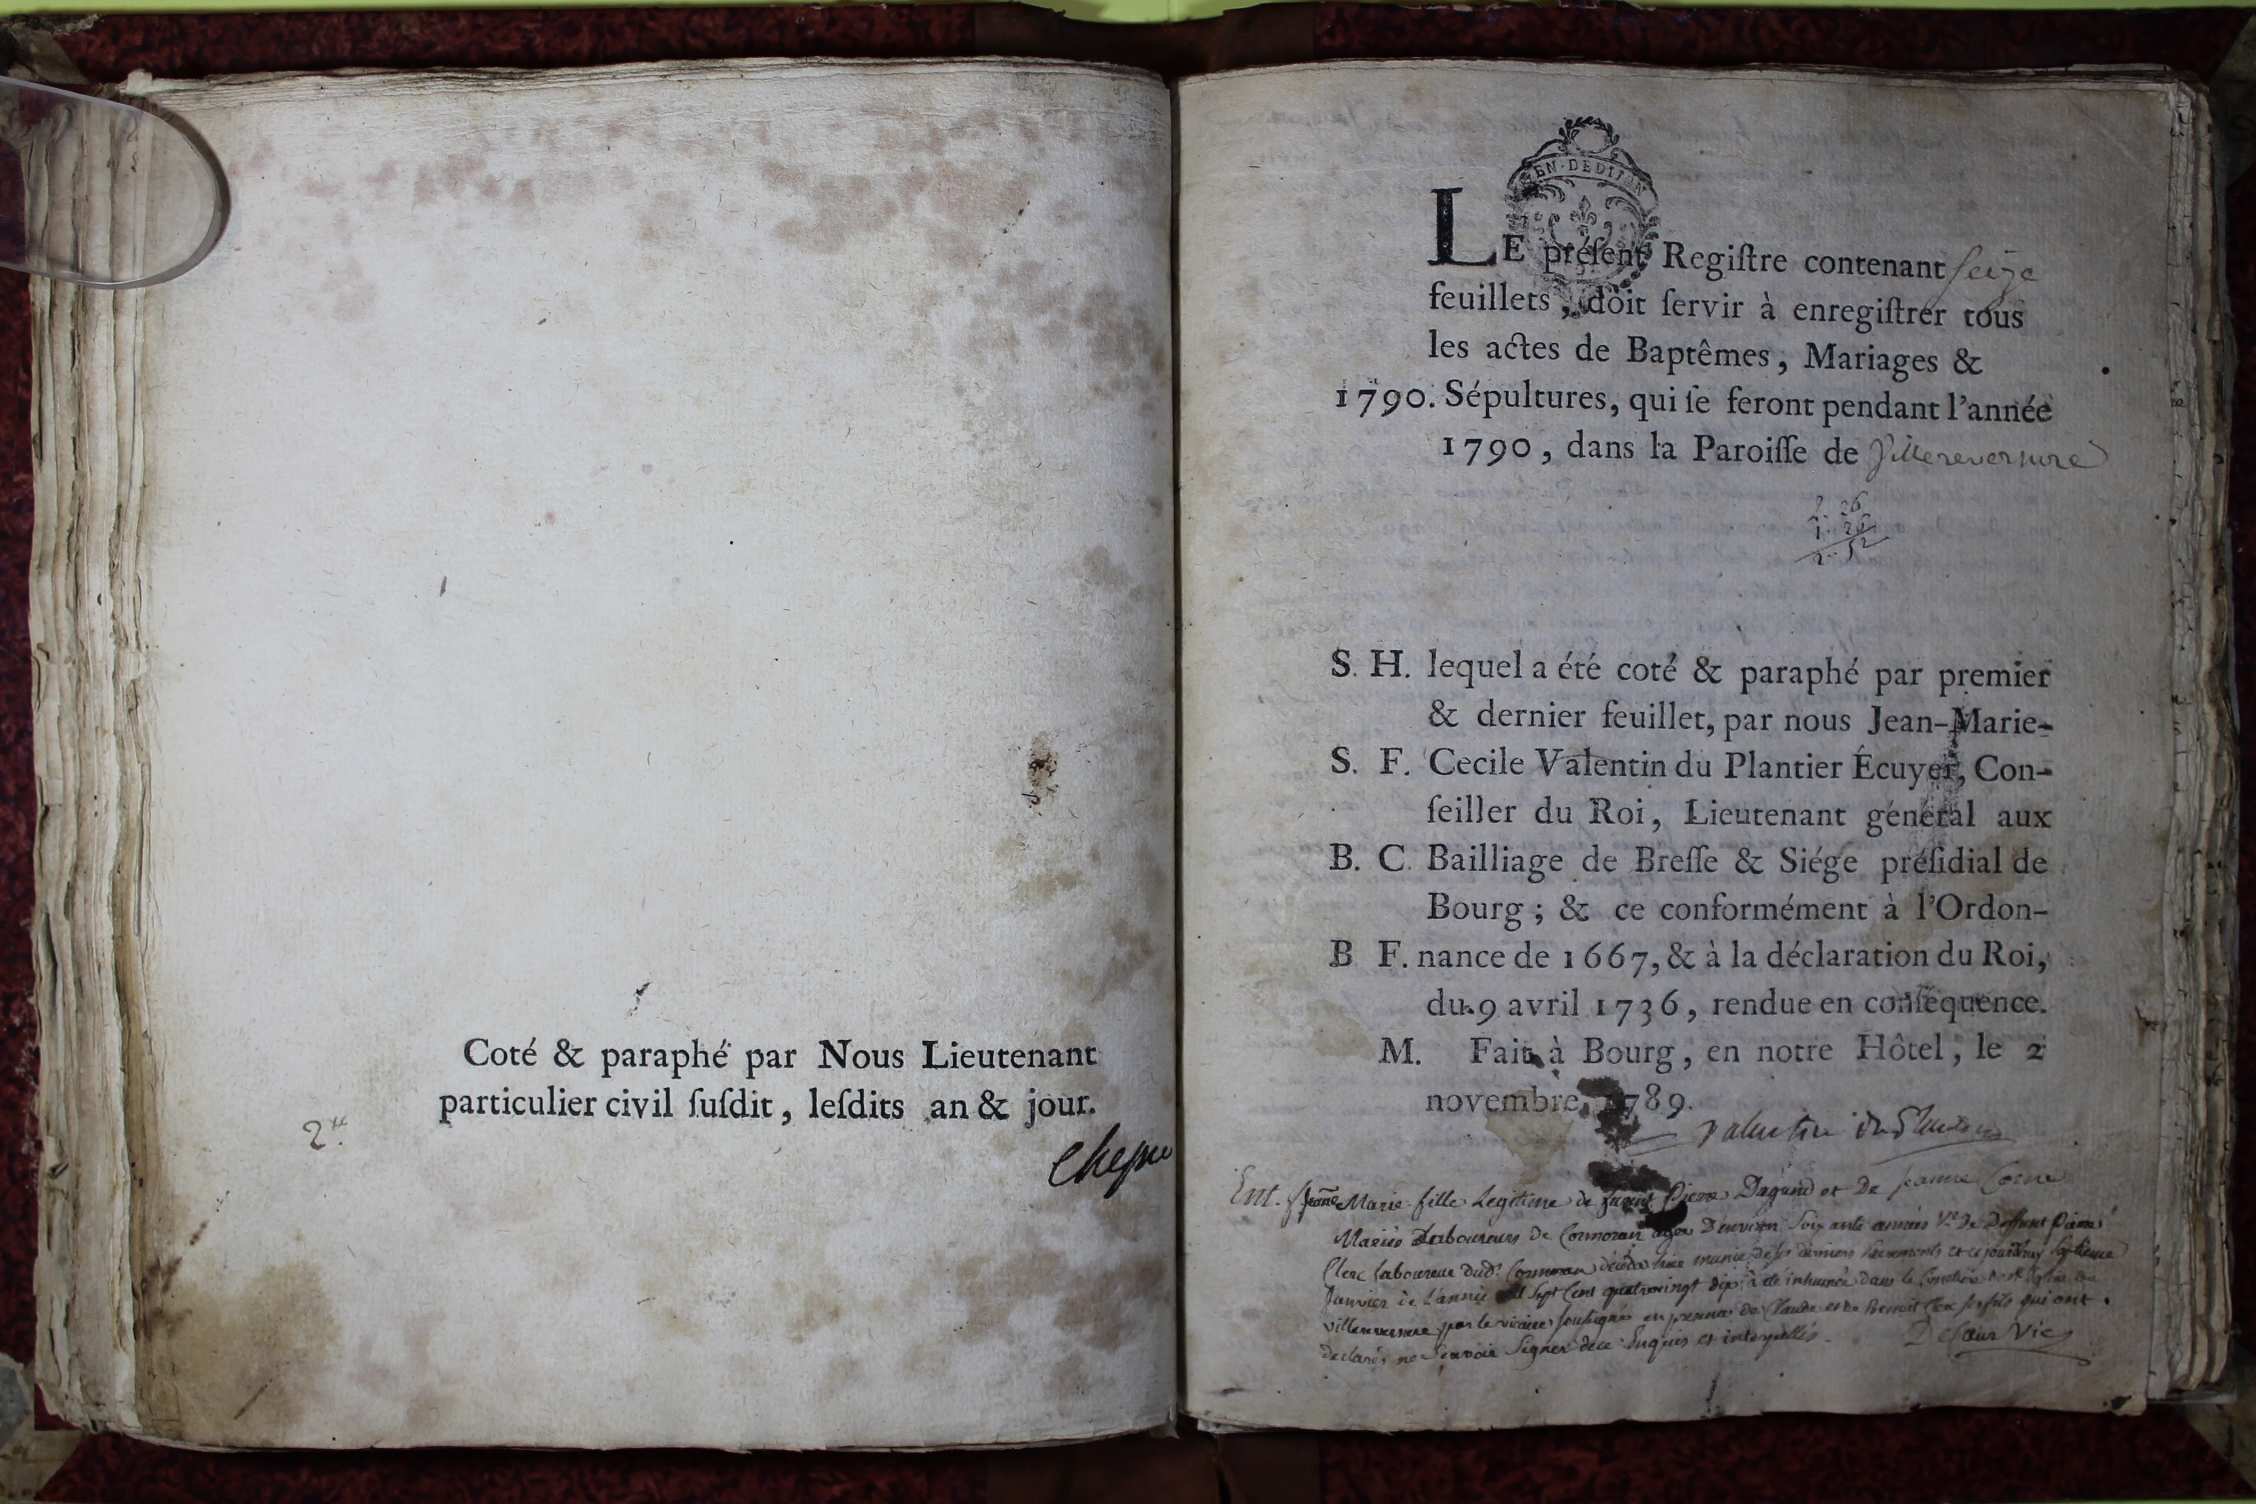 Coté & paraphé par Nous Lieutenant
particulier civil ſuſdit, leſdits an & jour.
2.#
GEN·DEDIJON
LE préſent Regiſtre contenant ſeize
feuillets, doit ſervir à enregiſtrer tous
les actes de Baptêmes, Mariages &
1790. Sépultures, qui ſe feront pendant l'année
1790, dans la Paroiſſe de Villereversure
1. 26
1. 26
2.. 52
S. H. lequel a été coté & paraphé par premier
& dernier feuillet, par nous Jean-Marie-
S. F. Cecile Valentin du Plantier Écuyer, Con-
ſeiller du Roi, Lieutenant général aux
B. C. Bailliage de Breſſe & Siége préſidial de
Bourg; & ce conformément à l'Ordon-
B F. nance de 1667, & à la déclaration du Roi,
du 9 avril 1736, rendue en conſéquence.
M. Fait à Bourg, en notre Hôtel, le 2
novembre, 1789.
valentin du Plantier
Ent. Jeanne Marie fille Legitime de Pierre Dagand et De jeanne Corne
Mariés Laboureurs De Cormoran agée D'environ Soixante années Ve De Deffunt Pierre
Clerc laboureur dud. Cormoran décédée hier munie de ses derniers Sacrements et cejourdhuy
Janvier de L'année mil Sept Cent quatrevingt dix à été inhumée Dans le Cimetière
villereversure par le vicaire soussigné en presence de Claude et de Benoit Clerc ses fils qui ont
declarés ne Scavoir Signer dece Enquis et interpellés. Desaur Vic